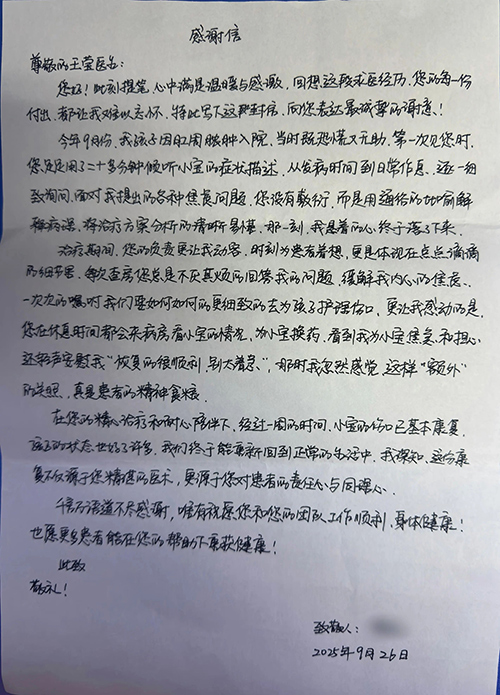 感谢信
尊敬的王莹医生:
您好!此刻提笔,心中满是温暖与感激,回想这段求医经历,您的每一份
付出,都让我难以忘怀,特此写下这封信,向您表达最诚挚的谢意!
今年9月份,我孩子因肛周脓肿入院,当时既恐慌又无助,第一次见您时,
您足足用了二十多分钟倾听小宝的症状描述,从发病时间到日常作息,逐一细
致询问,面对我提出的各种焦虑问题,您没有敷衍,而是用通俗的话讲解
病情,将治疗方案分析的清晰易懂,那一刻,我悬着的心终于落了下来.
治疗期间,您的负责更让我动容,时刻为患者着想,更是体现在点点滴滴
的细节里.每次查房您总是不厌其烦的回答我的问题,缓解我内心的焦虑.
一次次的嘱咐我们要如何如何的更细致的去为孩子护理伤口,更让我感动的是,
您在休息时间都会来病房看小宝的情况,为小宝换药,看到我为小宝焦急和担心,
还轻声安慰我“恢复的很顺利,别太着急”,那时我忽然感觉,这样“额外”
的关照,真是患者的精神食粮.
在您的精心治疗和耐心陪伴下,经过一周的时间,小宝的伤口已基本康复.
孩子的状态也好了许多,我们终于能重新回到正常的生活中,我深知,这份康
复不仅源于您精湛的医术,更源于您对患者的责任心与同理心.
千言万语道不尽感谢,唯有祝愿您和您的团队工作顺利、身体健康!
也愿更多患者能在您的帮助下重获健康!
此致
敬礼!
致敬人:
2025年9月26日